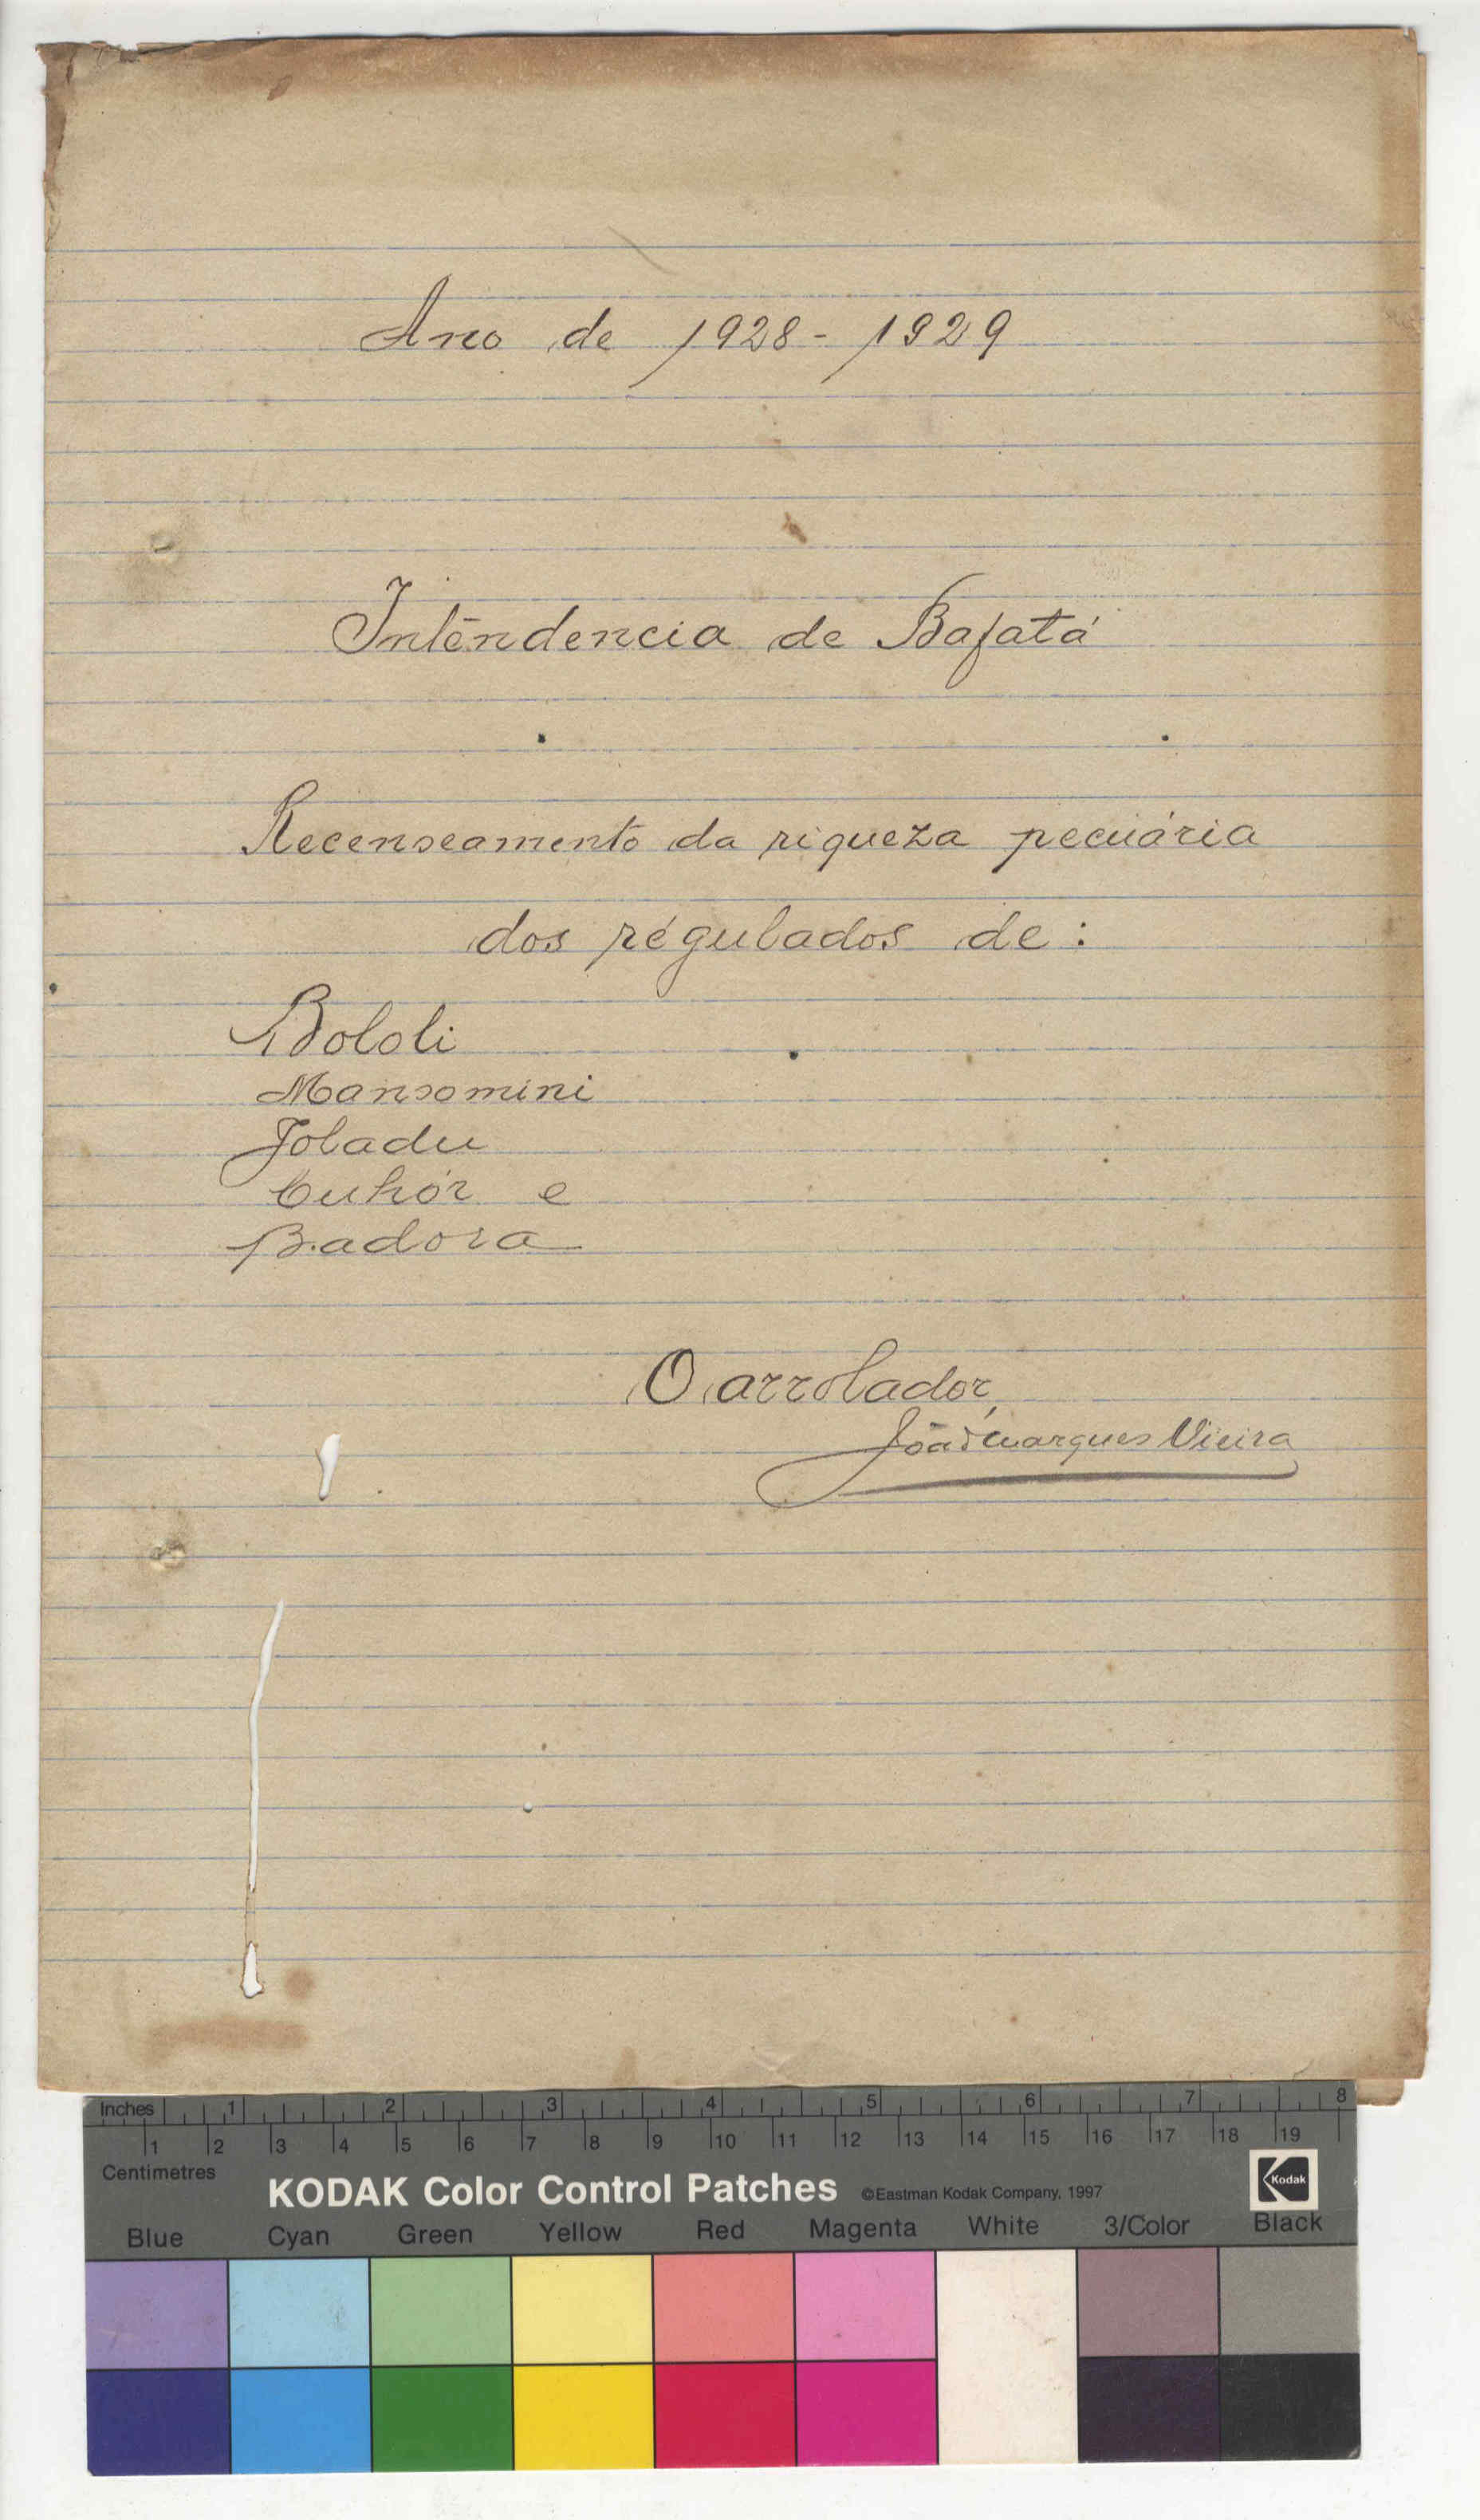 Ano de 1928-1929
Intendencia de Bafatá
Recenseamento da riqueza pecuária
dos régulados de:
Bololi
Mansomini
Joladu
Cuhór e
Badora
O arrolador,
João Marques Vieira
Inches 1 2 3 4 5 6 7 8
1 2 3 4 5 6 7 8 9 10 11 12 13 14 15 16 17 18 19
Centimetres
KODAK Color Control Patches ©Eastman Kodak Company, 1997 Kodak
Blue Cyan Green Yellow Red Magenta White 3/Color Black